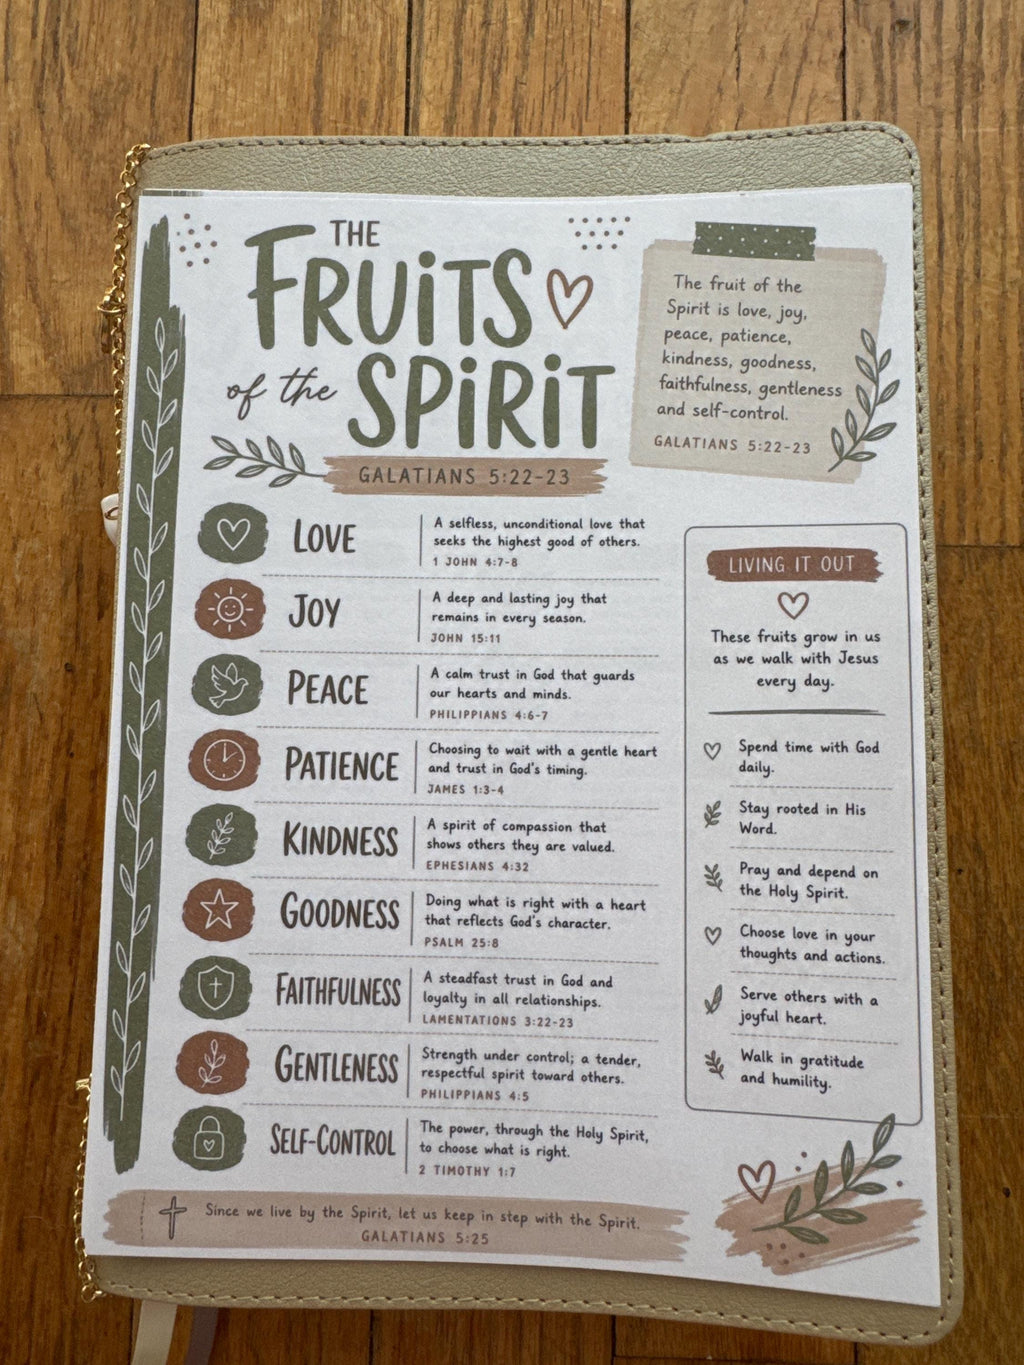 THE
FRUITS
of the SPIRIT
GALATIANS 5:22-23
The fruit of the
Spirit is love, joy,
peace, patience,
kindness, goodness,
faithfulness, gentleness
and self-control.
GALATIANS 5:22-23
LOVE
A selfless, unconditional love that
seeks the highest good of others.
1 JOHN 4:7-8
JOY
A deep and lasting joy that
remains in every season.
JOHN 15:11
PEACE
A calm trust in God that guards
our hearts and minds.
PHILIPPIANS 4:6-7
PATIENCE
Choosing to wait with a gentle heart
and trust in God's timing.
JAMES 1:3-4
KINDNESS
A spirit of compassion that
shows others they are valued.
EPHESIANS 4:32
GOODNESS
Doing what is right with a heart
that reflects God's character.
PSALM 25:8
FAITHFULNESS
A steadfast trust in God and
loyalty in all relationships.
LAMENTATIONS 3:22-23
GENTLENESS
Strength under control; a tender,
respectful spirit toward others.
PHILIPPIANS 4:5
SELF-CONTROL
The power, through the Holy Spirit,
to choose what is right.
2 TIMOTHY 1:7
LIVING IT OUT
These fruits grow in us
as we walk with Jesus
every day.
Spend time with God
daily.
Stay rooted in His
Word.
Pray and depend on
the Holy Spirit.
Choose love in your
thoughts and actions.
Serve others with a
joyful heart.
Walk in gratitude
and humility.
Since we live by the Spirit, let us keep in step with the Spirit.
GALATIANS 5:25